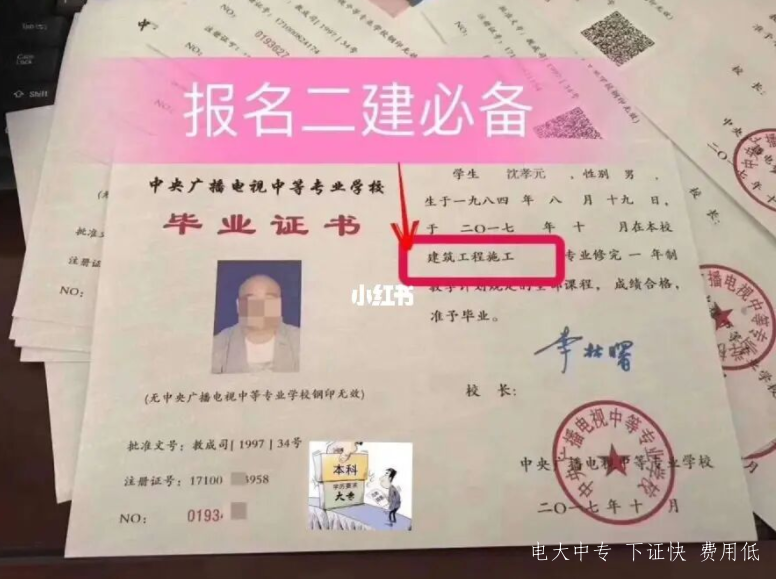 中
17100824174
0193027
教成司[1997]34号
报名二建必备
中央广播电视中等专业学校
毕业证书
学生 沈孝元 ,性别 男 ,
生于一九八四年 八 月 十九 日,
于 二〇一七 年 十 月在本校
建筑工程施工 专业修完 一 年制
教学计划规定的全部课程,成绩合格,
准予毕业。
小红书
(无中央广播电视中等专业学校钢印无效)
校 长:
李林曙
批准文号:教成司[1997]34号
注册证号:17100 4958
NO: 0193
本科
学历要求
大专
中央广播电视中等专业学校
二〇一七年 十 月
中央广播电视中等专业学校
电大中专 下证快 费用低